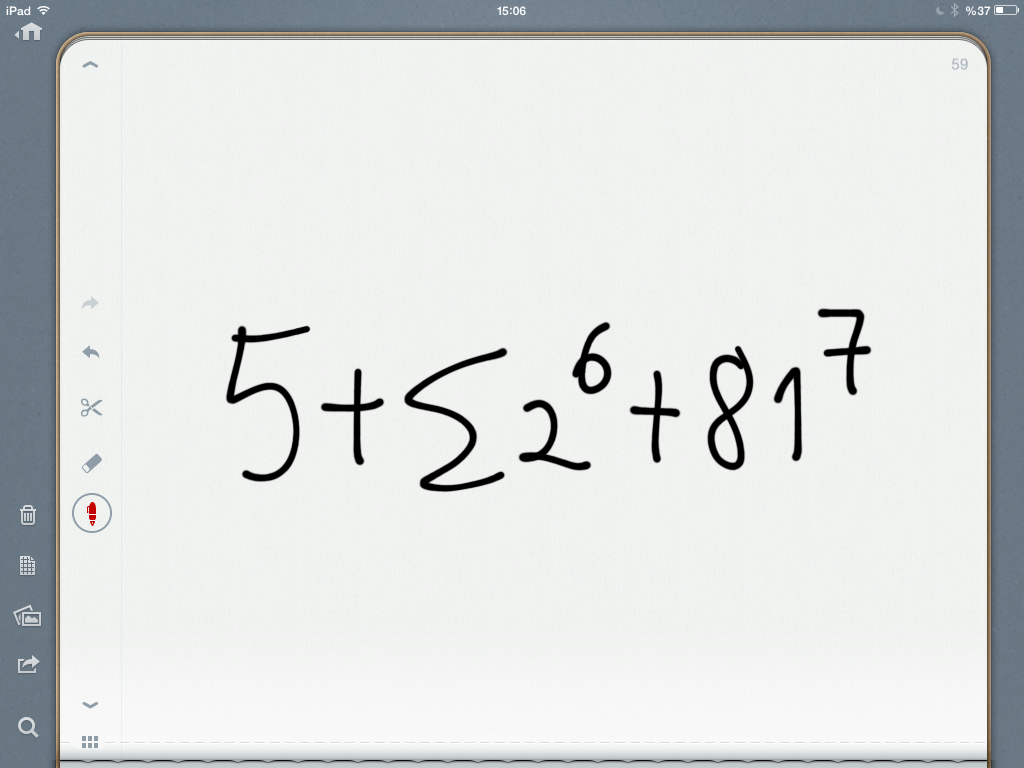 iPad 15:06 %37
59
5+∑2⁶+81⁷